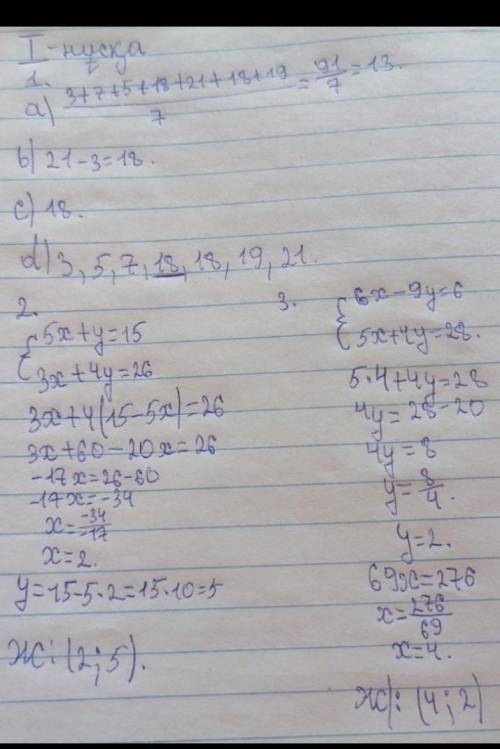 I-нұсқа
1.
a) 3+7+5+18+21+18+19 / 7 = 91/7 = 13.
b) 21-3=18.
c) 18.
d) 3, 5, 7, 18, 18, 19, 21.
2.
{5x+y=15
3x+4y=26
3x+4(15-5x)=26
3x+60-20x=26
-17x=26-60
-17x=-34
x=-34/-17
x=2.
y=15-5·2=15·10=5
Ж: (2;5).
3.
{6x-9y=6
5x+4y=28.
5·4+4y=28
4y=28-20
4y=8
y=8/4.
y=2.
69x=276
x=276/69
x=4.
Ж: (4;2)